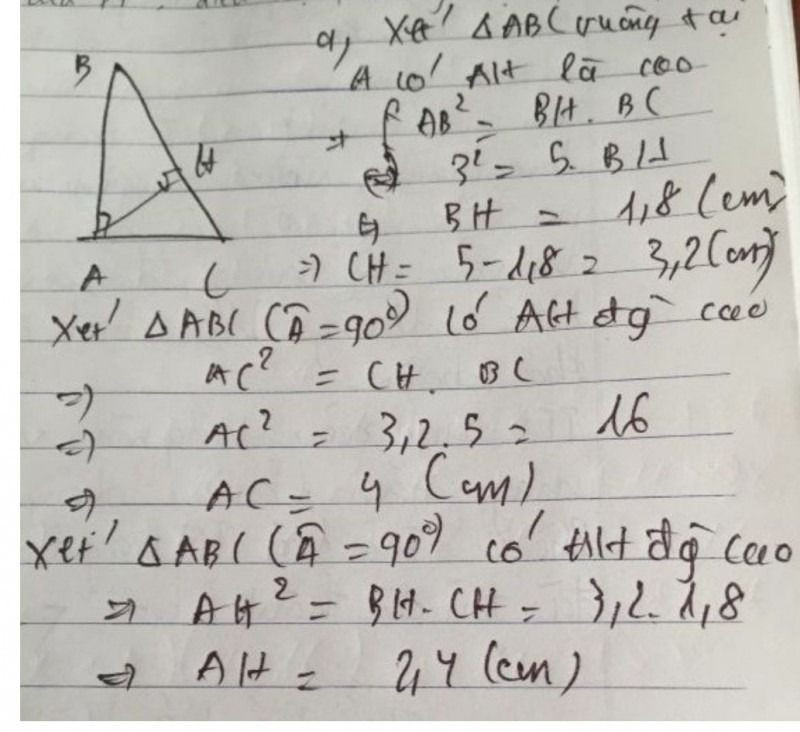 a, Xét ΔABC vuông tại
A có AH là cao
B
H
A
C
=> { AB² = BH. BC
<=> 3² = 5. BH
<=> BH = 1,8 (cm)
=> CH = 5-1,8 = 3,2(cm)
Xét ΔABC (Â = 90°) có AH đg cao
=> AC² = CH. BC
=> AC² = 3,2.5 = 16
=> AC = 4 (cm)
Xét ΔABC (Â = 90°) có AH đg cao
=> AH² = BH. CH = 3,2. 1,8
=> AH = 2,4 (cm)